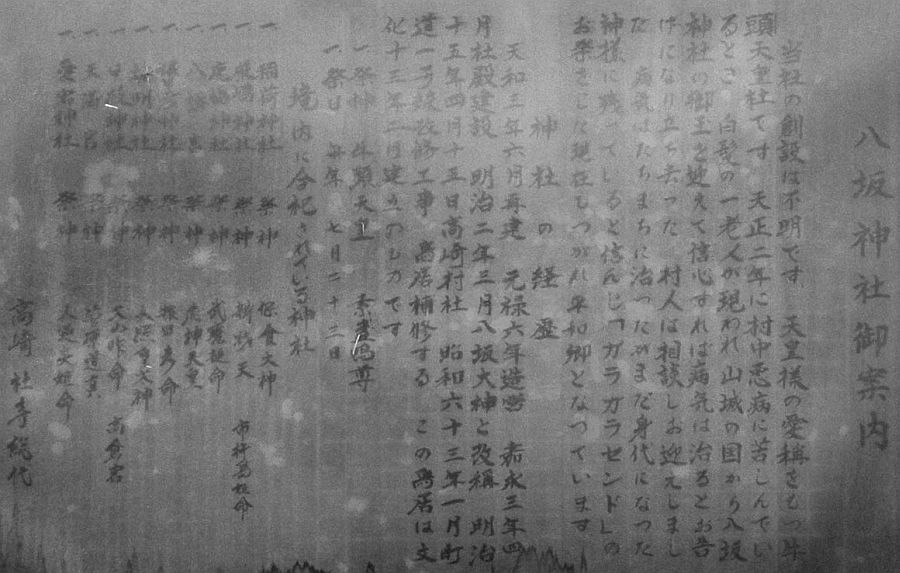 八坂神社御案内
当社の創設は不明です 天皇様の愛称をもつ牛
頭天皇社です 天正二年に村中悪病に苦しんでい
るとき 白髪の一老人が現われ山城の国から八坂
神社の御王を迎えて信心すれば病気は治るとお告
げになり立ち去った 村人は相談しお迎えしまし
た 病気はたちまちに治ったがまだ身代になった
神様に残っていると信んじ「ガラガラセンド」の
お祭をした現在もつがれ平和郷となっています
神社の経歴
天和三年六月再建 元禄六年造営 嘉永三年四
月社殿建設 明治二年三月八坂大神と改称 明治
十五年四月十五日高崎村社 昭和六十三年一月町
道一号線改修工事 鳥居補修する この鳥居は文
化十三年二月建立のものです
一、祭神 牛頭天皇 素盞嗚尊
一、祭日 毎年 七月二十三日
境内に今祀されている神社
一、稲荷神社 祭神 保食大神
一、神社 祭神 市杵島姫命
一、鹿島神社 祭神 武甕槌命
一、八 祭神 天皇
一、神社 祭神 命
一、神明神社 祭神 天照皇大神
一、神社 祭神 大山咋命 高倉宮
一、天満宮 祭神 菅原道真
一、愛宕神社 祭神 命
高崎 社寺総代